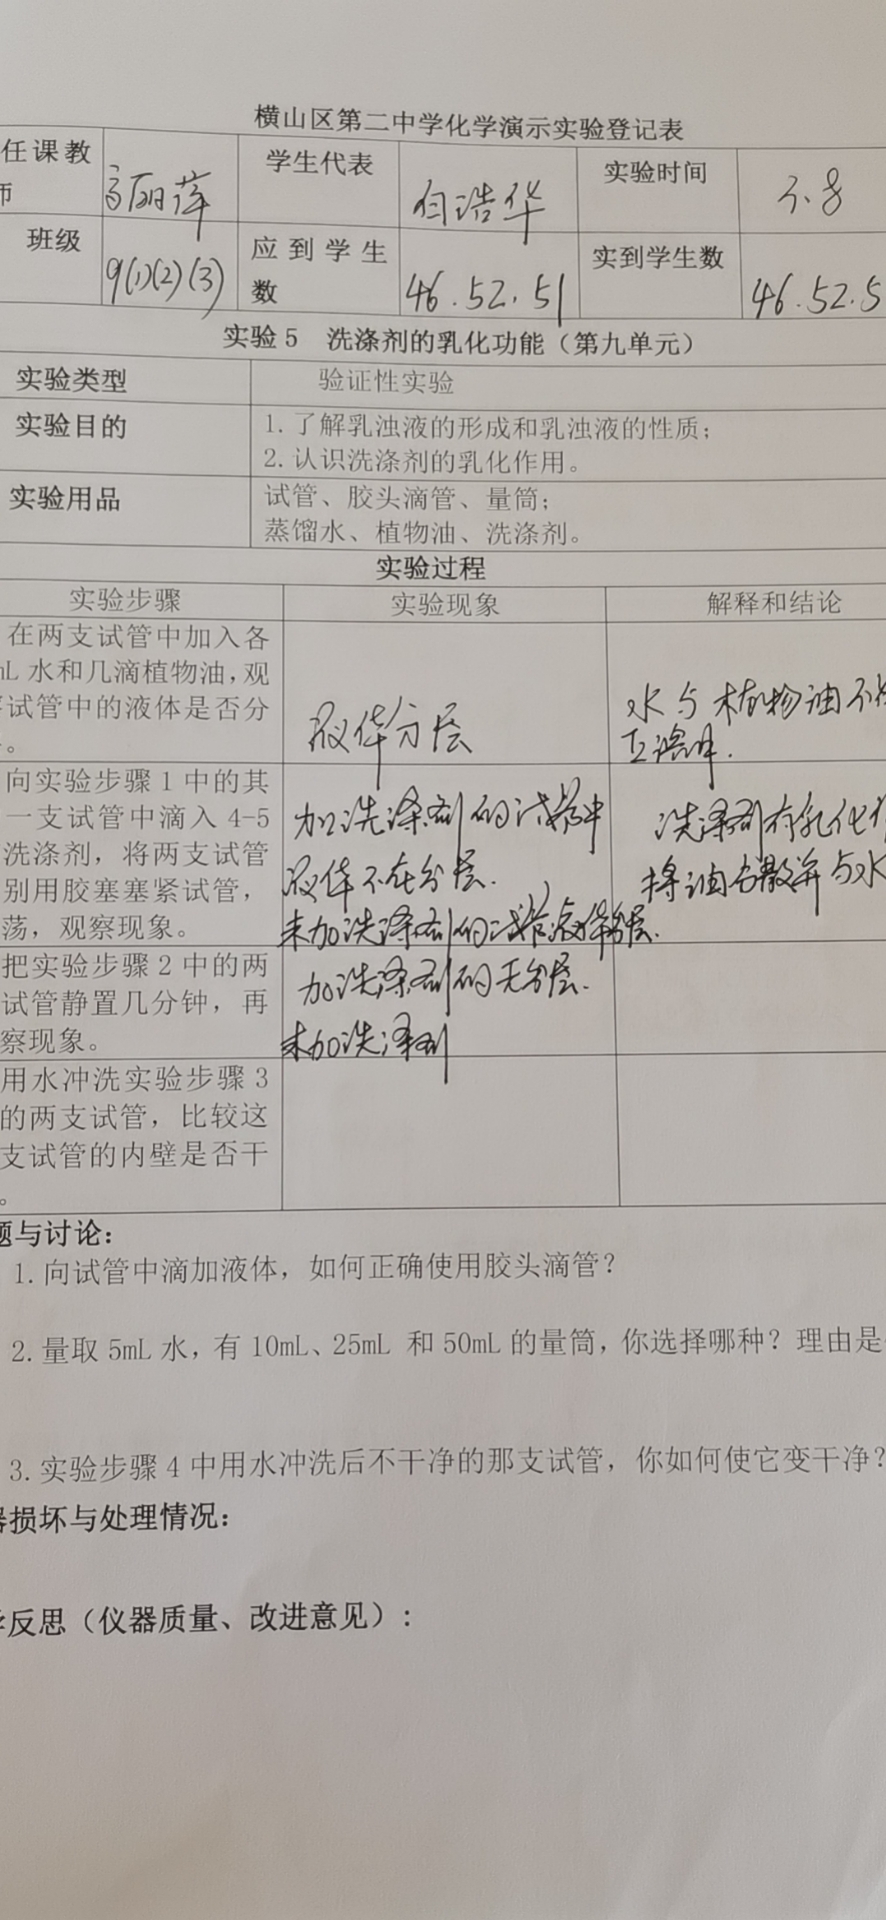 横山区第二中学化学演示实验登记表
任课教
师
高丽萍
学生代表
白浩华
实验时间
班级
9(1)(2)(3)
应到学生
数
46.52.51
实到学生数
46.52.5
实验5 洗涤剂的乳化功能（第九单元）
实验类型
验证性实验
实验目的
1.了解乳浊液的形成和乳浊液的性质；
2.认识洗涤剂的乳化作用。
实验用品
试管、胶头滴管、量筒；
蒸馏水、植物油、洗涤剂。
实验过程
实验步骤
实验现象
解释和结论
在两支试管中加入各
mL水和几滴植物油，观
试管中的液体是否分
。
液体分层
水与植物油不
互溶.
向实验步骤1中的其
一支试管中滴入4-5
洗涤剂，将两支试管
别用胶塞塞紧试管，
荡，观察现象。
加洗涤剂的试管中
液体不在分层.
未加洗涤剂的试管液体分层.
洗涤剂有乳化
将油分散并与水
把实验步骤2中的两
试管静置几分钟，再
察现象。
加洗涤剂的无分层.
未加洗涤剂
用水冲洗实验步骤3
的两支试管，比较这
支试管的内壁是否干
。
题与讨论：
1.向试管中滴加液体，如何正确使用胶头滴管？
2.量取5mL水，有10mL、25mL 和50mL的量筒，你选择哪种？理由是
3.实验步骤4中用水冲洗后不干净的那支试管，你如何使它变干净？
器损坏与处理情况：
学反思（仪器质量、改进意见）：